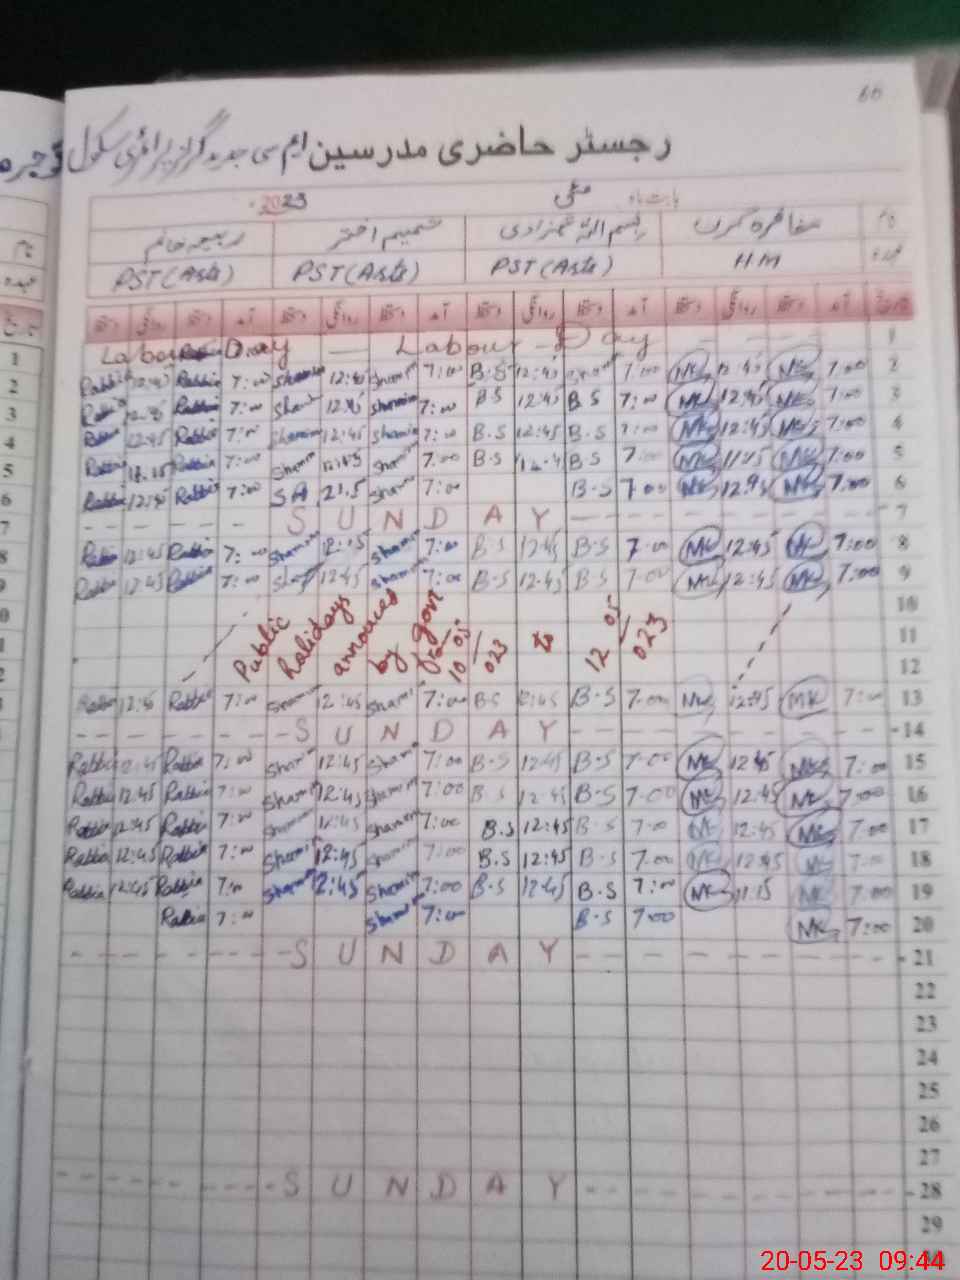 60
رجسٹر حاضری مدرسین ایم سی جدید گرلز پرائمری سکول
بابت ماہ مئی 2023
نام شمیم اختر ربیعہ خانم
عہدہ H.M PST (Arts) PST (Arts) PST (Arts)
تاریخ آمد دستخط روانگی دستخط آمد دستخط روانگی دستخط آمد دستخط روانگی دستخط آمد دستخط روانگی دستخط
Labour Day — Labour - Day 1
Rabbia 12:45 Rabbia 7:00 Shamim 12:45 Shamim 7:00 B.S 12:45 7:00 MK 12:45 MK 7:00 2
Rabbia 12:45 Rabbia 7:00 Sham 12:45 Shamim 7:00 B.S 12:45 B.S 7:00 MK 12:45 MK 7:00 3
Rabbia 12:45 Rabbia 7:00 Shamim 12:45 Shamim 7:00 B.S 12:45 B.S 7:00 MK 12:45 MK 7:00 4
Rabbia Rabbia 7:00 Shamim Shamim 7:00 B.S B.S 7:00 MK 11:15 MK 7:00 5
Rabbia 12:45 Rabbia 7:00 SA Shamim 7:00 B.S 7:00 MK 12:45 MK 7:00 6
S U N D A Y 7
Rabbia 12:45 Rabbia 7:00 Shamim 12:45 Shamim 7:00 B.S 12:45 B.S 7:00 MK 12:45 MK 7:00 8
Rabbia 12:45 Rabbia 7:00 12:45 Shamim 7:00 B.S 12:45 B.S 7:00 MK 12:45 MK 7:00 9
10
Public halidays announced by govt 10/05/023 to 12/05/023 11
12
Rabbia 12:45 Rabbia 7:00 Shamim 12:45 Shamim 7:00 B.S 12:45 B.S 7:00 MK 12:45 MK 7:00 13
S U N D A Y 14
Rabbia 12:45 Rabbia 7:00 Shamim 12:45 Shamim 7:00 B.S 12:45 B.S 7:00 MK 12:45 MK 7:00 15
Rabbia 12:45 Rabbia 7:00 Shamim 12:45 Shamim 7:00 B.S 12:45 B.S 7:00 MK 12:45 MK 7:00 16
Rabbia 12:45 Rabbia 7:00 Shamim 12:45 Shamim 7:00 B.S 12:45 B.S 7:00 MK 12:45 MK 7:00 17
Rabbia 12:45 Rabbia 7:00 Shamim 12:45 Shamim 7:00 B.S 12:45 B.S 7:00 MK 12:45 MK 7:00 18
Rabbia 12:45 Rabbia 7:00 Shamim 12:45 Shamim 7:00 B.S 12:45 B.S 7:00 MK 11:15 MK 7:00 19
Rabbia 7:00 Shamim 7:00 B.S 7:00 MK 7:00 20
S U N D A Y 21
22
23
24
25
26
27
S U N D A Y 28
29
20-05-23 09:44